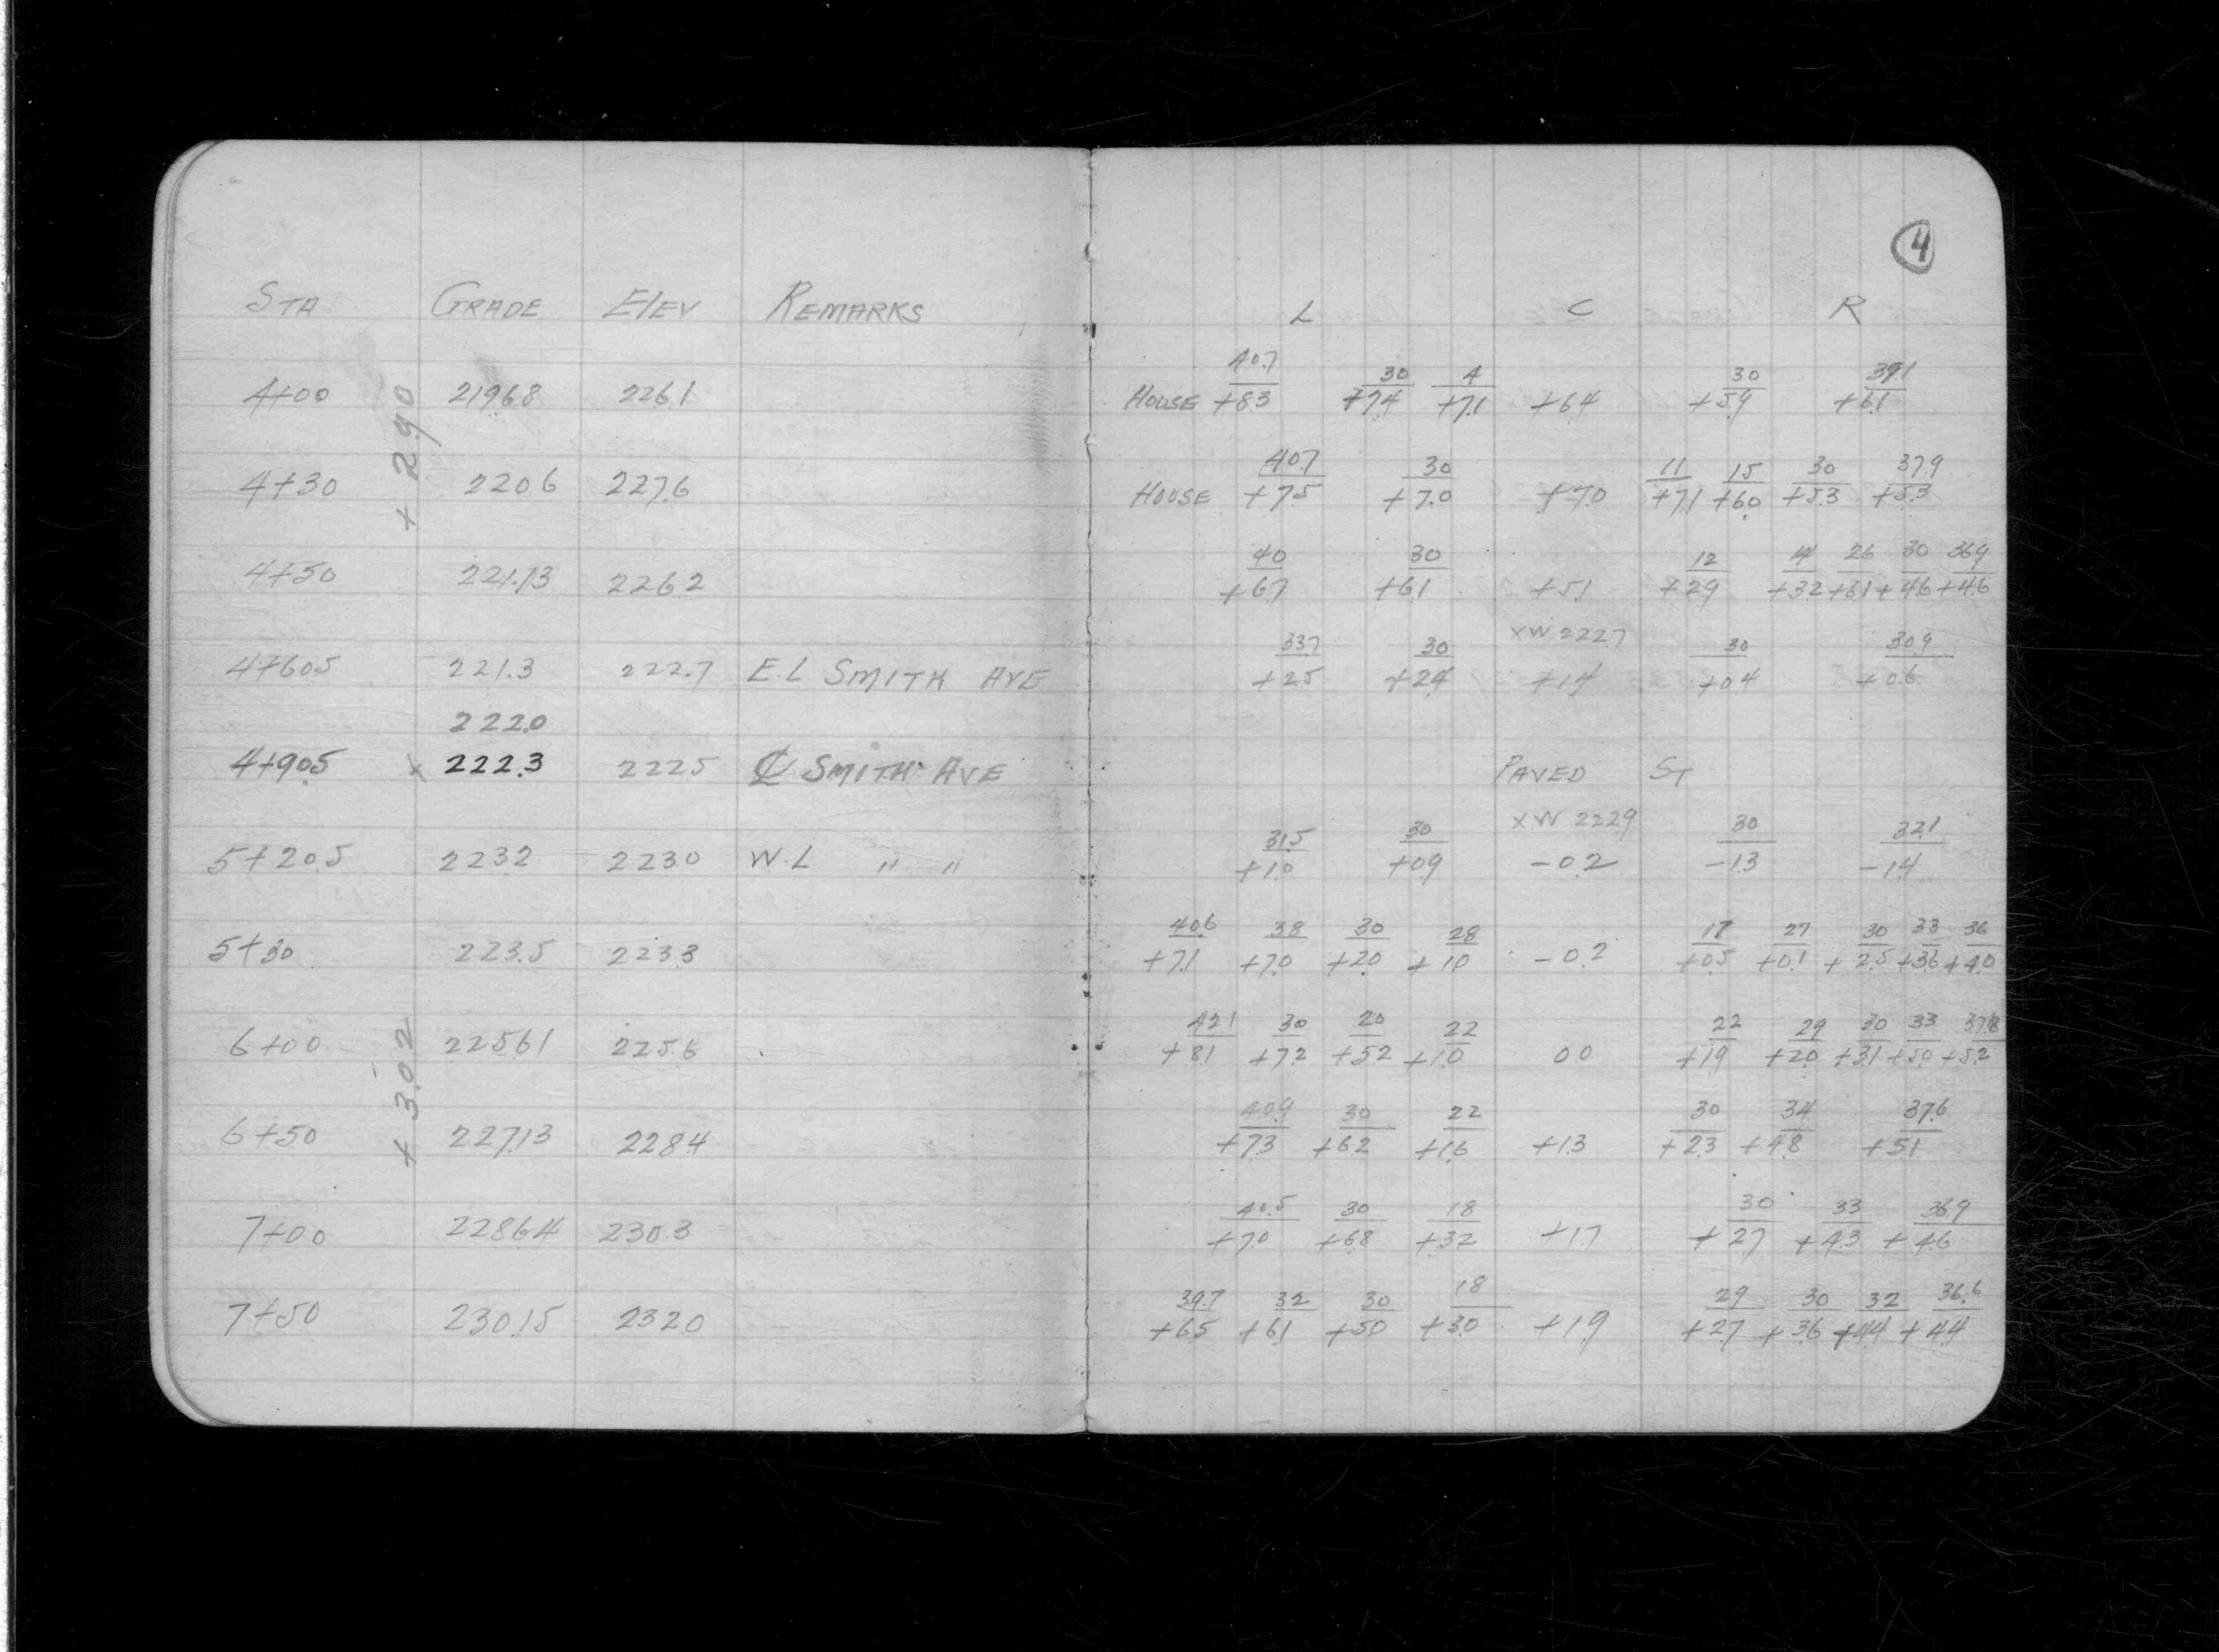 4
STA GRADE ELEV REMARKS L C R
40.7 30 4 30 39.1
4+00 219.68 226.1 HOUSE +8.3 +7.4 +7.1 +6.4 +5.9 +6.1
+2.90
40.7 30 11 15 30 37.9
4+30 220.6 227.6 HOUSE +7.5 +7.0 +7.0 +7.1 +6.0 +5.3 +5.3
40 30 12 14 26 30 36.9
4+50 221.13 226.2 +6.7 +6.1 +5.1 +2.9 +3.2 +6.1 +4.6 +4.6
33.7 30 XW 222.7 30 30.9
4+60.5 221.3 222.7 E.L SMITH AVE +2.5 +2.4 +1.4 +0.4 +0.6
222.0
4+90.5 x 222.3 222.5 ℄ SMITH AVE PAVED ST
31.5 30 XW 222.9 30 32.1
5+20.5 223.2 223.0 W.L " " +1.0 +0.9 -0.2 -1.3 -1.4
40.6 38 30 28 17 27 30 33 36
5+30 223.5 223.3 +7.1 +7.0 +2.0 +1.0 -0.2 +0.5 +0.1 +2.5 +3.6 +4.0
42.1 30 20 22 22 29 30 33 37.8
6+00 225.61 225.6 +8.1 +7.2 +5.2 +1.0 0.0 +1.9 +2.0 +3.1 +5.0 +5.2
+3.02
40.9 30 22 30 34 37.6
6+50 227.13 228.4 +7.3 +6.2 +1.6 +1.3 +2.3 +4.8 +5.1
40.5 30 18 30 33 36.9
7+00 228.64 230.3 +7.0 +6.8 +3.2 +1.7 +2.7 +4.3 +4.6
39.7 32 30 18 29 30 32 36.6
7+50 230.15 232.0 +6.5 +6.1 +5.0 +3.0 +1.9 +2.7 +3.6 +4.4 +4.4